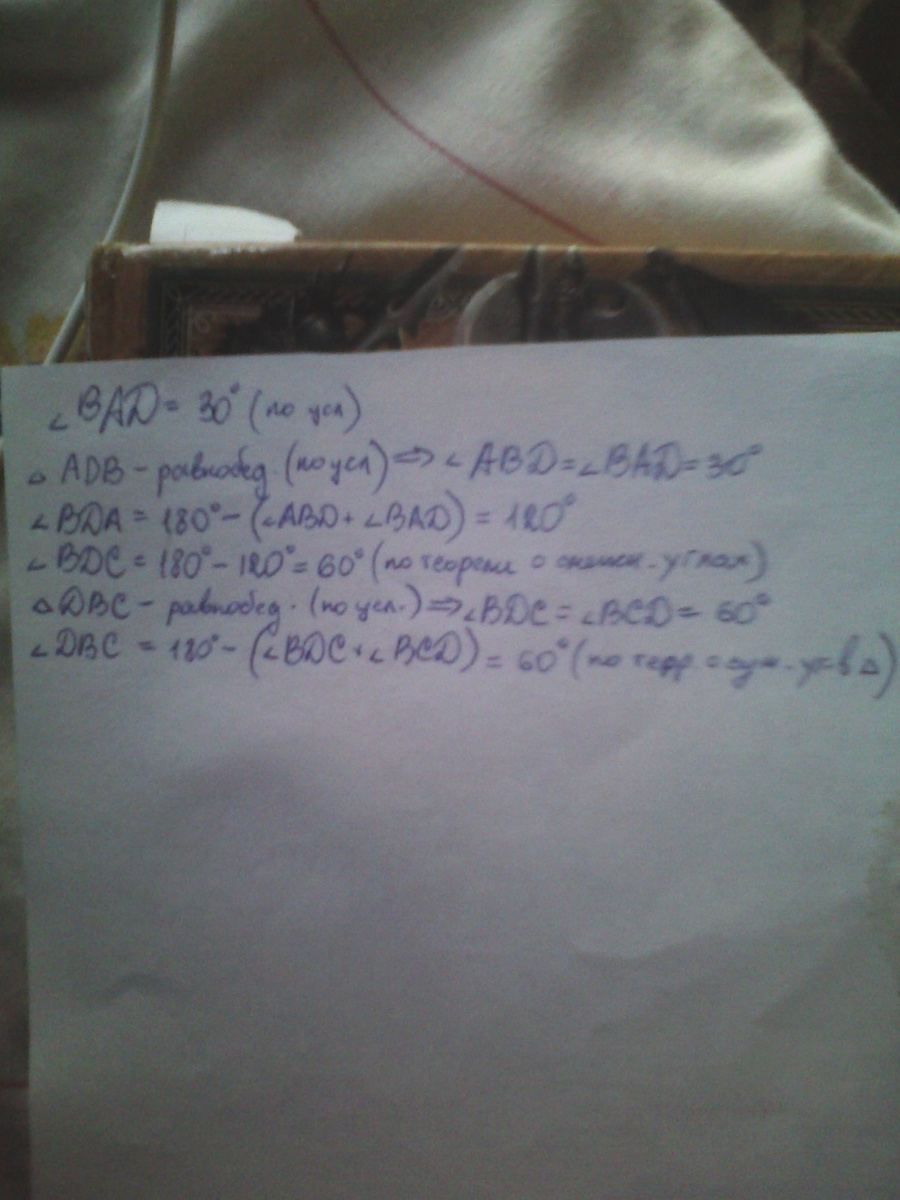 ∠BAD = 30° (по усл)
△ ADB - равнобед. (по усл) ⇒ ∠ABD = ∠BAD = 30°
∠BDA = 180° - (∠ABD + ∠BAD) = 120°
∠BDC = 180° - 120° = 60° (по теореме о смежн. углах)
△ DBC - равнобед. (по усл.) ⇒ ∠BDC = ∠BCD = 60°
∠DBC = 180° - (∠BDC + ∠BCD) = 60° (по в △)